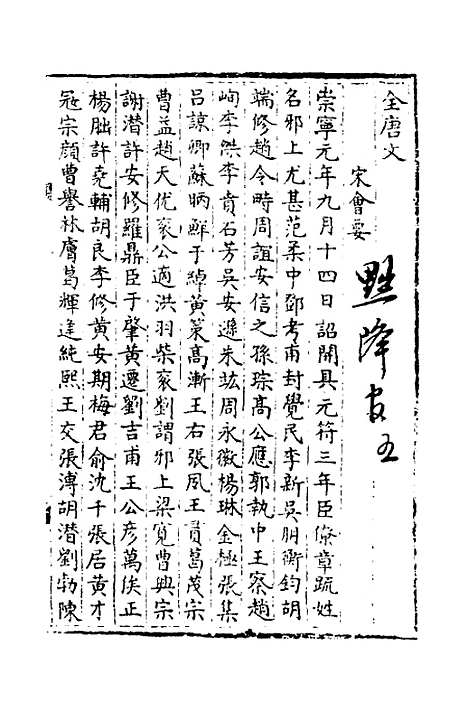 全唐文
宋會要
黜降官五
崇寧元年九月十四日詔開具元符三年臣僚章疏姓
名邪上尤甚范柔中鄧考甫封覺民李新吳朋衡鈞胡
端修趙令時周誼安信之孫琮高公應郭執中王察趙
峋李傑李賁石芳吳安遜朱竑周永徽楊琳金極張集
呂諒卿蘇昞鮮于綽黃策高漸王右張夙王貢葛茂宗
曹益趙天佐袞公適洪羽柴袞劉謂邪上梁寬曹興宗
謝潛許安修羅鼎臣于肇黃遷劉吉甫王公彥萬俟正
楊朏許堯輔胡良李修黃安期梅君俞沈千張居黃才
冦宗顏曹譽林膚葛輝逢純熙王交張溥胡潛劉勃陳